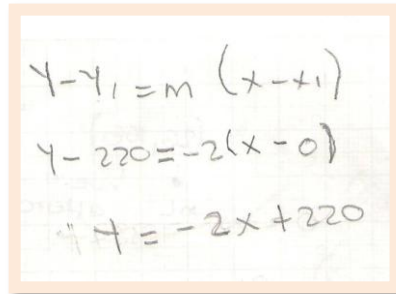 y-y₁=m (x-x₁)
y-220=-2(x-0)
∴ y=-2x+220